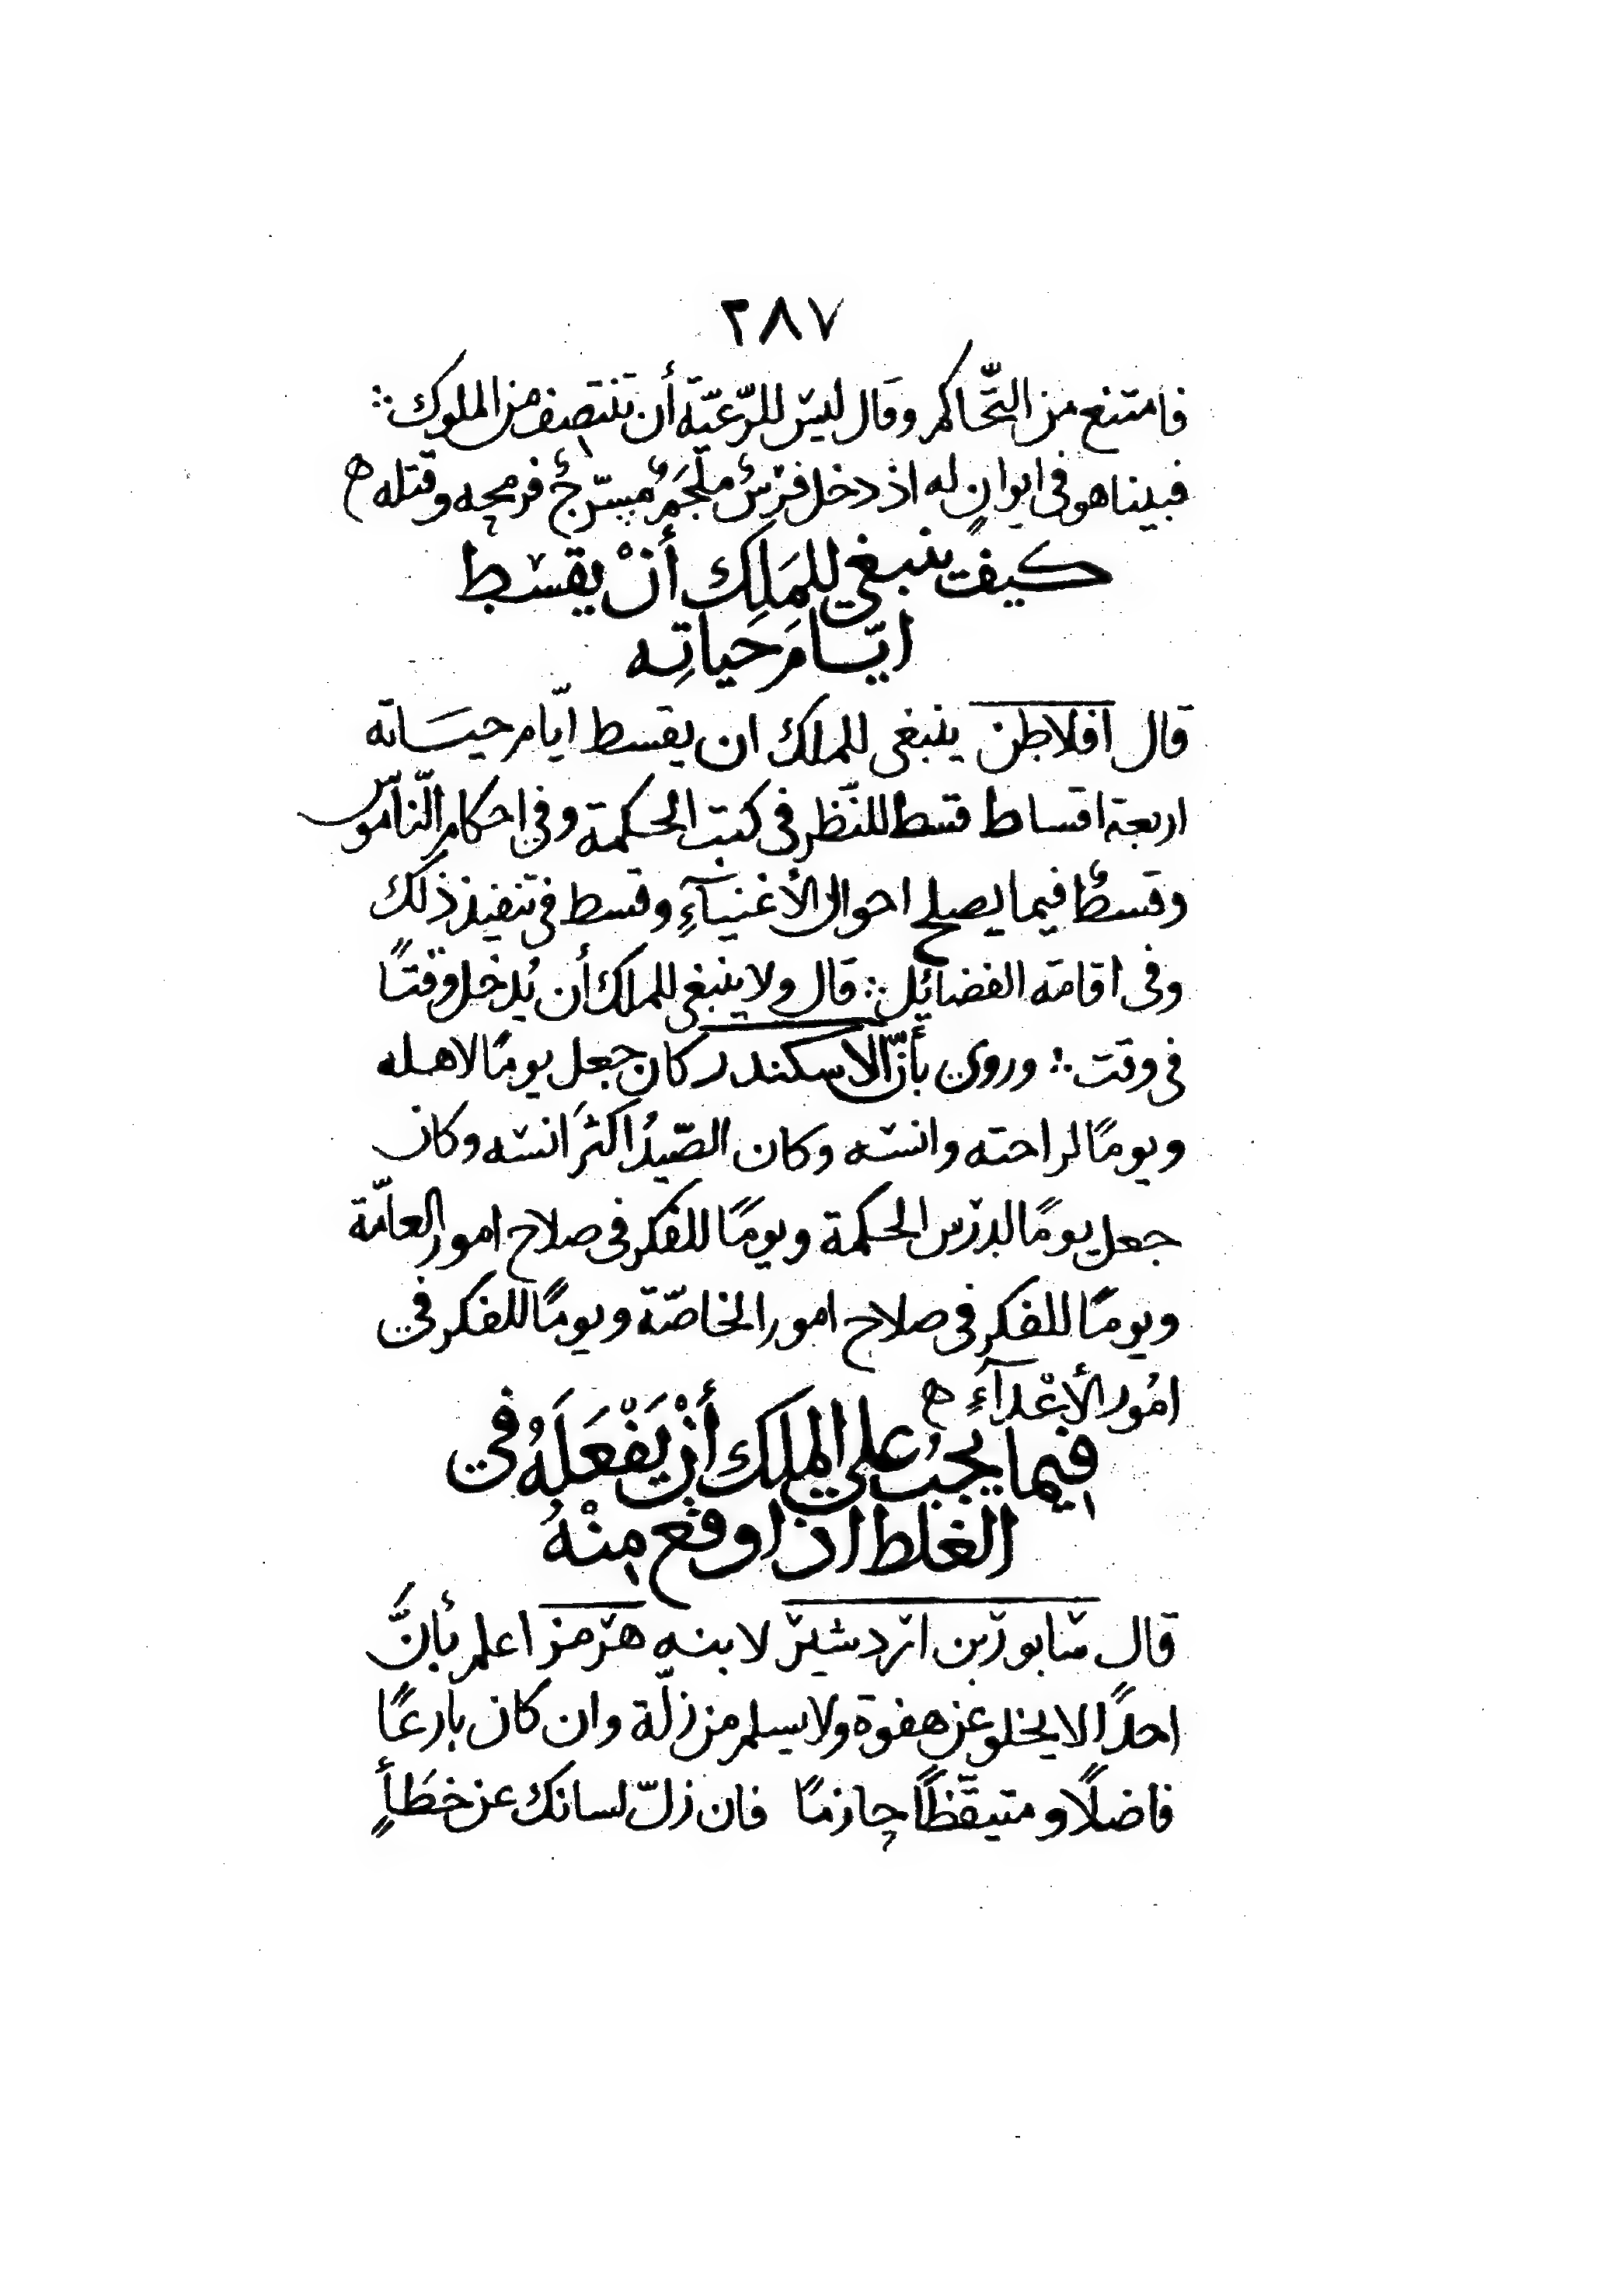 ٢٨٧
فامتنع من التّحاكم وقال ليس للرّعيّة أن تنتصف من الملوك ∴
فبينا هو في ايوانٍ له اذ دخل فرسٌ ملجَمٌ مسرّجٌ فرمحه وقتله ه
كيف ينبغي للمَلِك أنْ يقسط
ايّامَ حَياتِه
قال افلاطن ينبغي للملك ان يقسط ايّام حيَاته
اربعة اقساط قسط للنّظر في كتب الحكمة وفي احكام النّاموس
وقسطٌ فيما يصلح احوال الأغنيآءِ وقسط في تنفيذ ذلك
وفي اقامة الفضائل ∴ قال ولا ينبغي للملك أن يُدخل وقتًا
في وقت ∴ وروي بأنّ الاسكندر كان جعل يومًا لاهله
ويومًا لراحته وانسه وكان الصّيدُ اكثرَ انسه وكان
جعل يومًا لدرس الحكمة ويومًا للفكر في صلاح امور العامّة
ويومًا للفكر في صلاح امور الخاصّة ويومًا للفكر في
امُور الأعْدآءِ ه
فِيما يجبُ على الملك أنْ يَفْعَلَهُ في
الغلط اذا وقع مِنْهُ
قال سابور بن اردشير لابنه هرمز اعلم بأنَّ
احدًا لا يخلو عن هفوة ولا يسلم من زلّة وان كان بارعًا
فاضلًا ومتيقّظًا حازمًا فان زلّ لسانك عن خطَأٍ